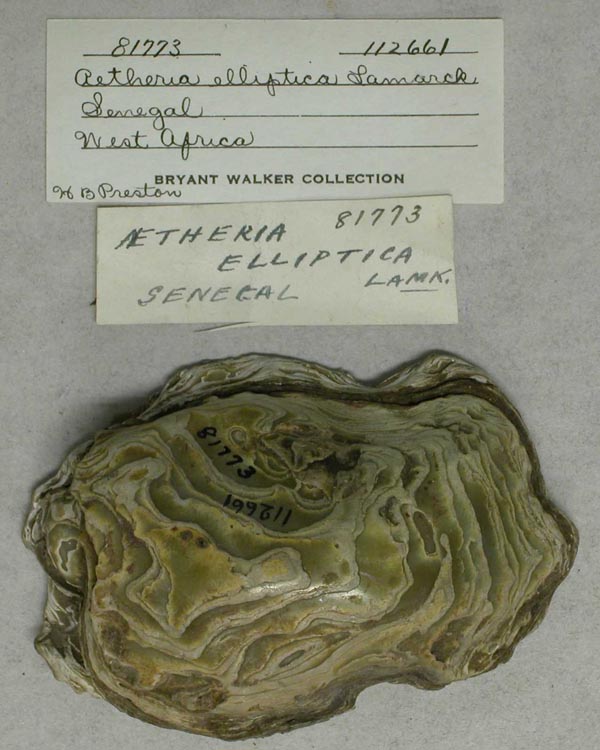 81773 112661
Aetheria elliptica Lamarck
Senegal
West Africa
BRYANT WALKER COLLECTION
H B Preston
ÆTHERIA 81773
ELLIPTICA
LAMK.
SENEGAL
81773
112661